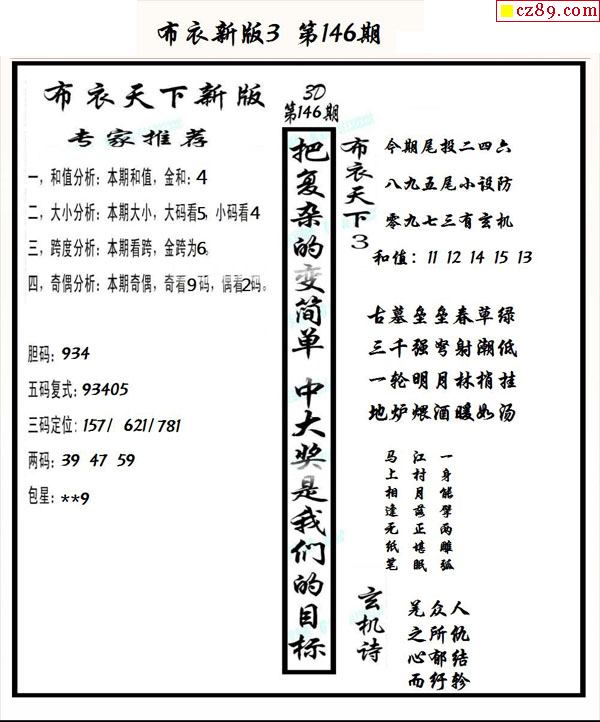 cz89.com
布衣新版3 第146期
布衣天下新版
专家推荐
一，和值分析：本期和值，金和：4
二，大小分析：本期大小，大码看5，小码看4
三，跨度分析：本期看跨，金跨为6。
四，奇偶分析：本期奇偶，奇看9码，偶看2码。
胆码：934
五码复式：93405
三码定位：157/ 621/781
两码：39 47 59
包星：**9
3D
第146期
把复杂的变简单 中大奖是我们的目标
布衣天下3
今期尾投二四六
八九五尾小设防
零九七三有玄机
和值：11 12 14 15 13
古墓垒垒春草绿
三千强弩射潮低
一轮明月林梢挂
地炉煨酒暖如汤
一身能擘两雕弧
江村月落正堪眠
马上相逢无纸笔
玄机诗
羌众人
之所仇
心郁结
而纡轸